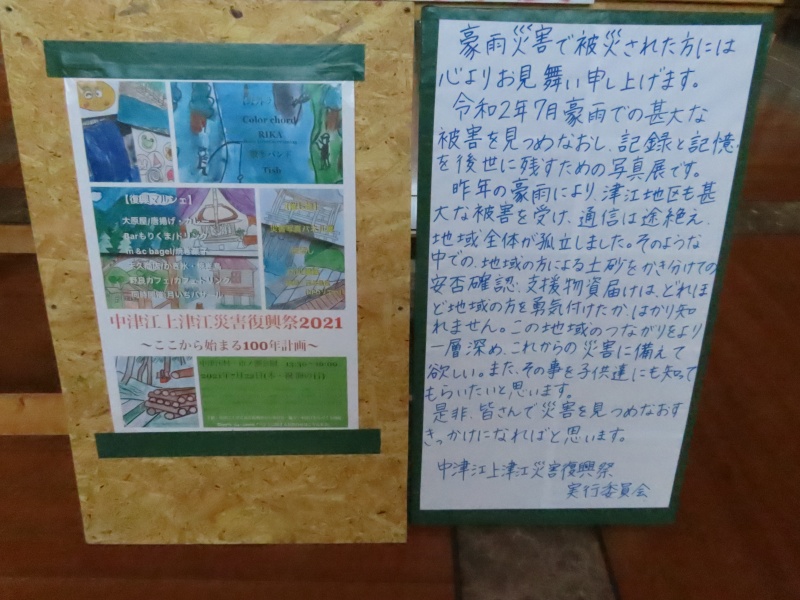 Color chord
RIKA
Tish
大原屋/唐揚げ・カレー
Barもりくま/ドリンク
m & c bagel/焼き菓子
野良カフェ/カフェドリンク
中津江上津江災害復興祭2021
～ここから始まる100年計画～
豪雨災害で被災された方には
心よりお見舞い申し上げます。
令和2年7月豪雨での甚大な
被害を見つめなおし、記録と記憶
を後世に残すための写真展です。
昨年の豪雨により、津江地区も甚
大な被害を受け、通信は途絶え、
地域全体が孤立しました。そのような
中での、地域の方による土砂をかき分けての
安否確認、支援物資届けは、どれほ
ど地域の方を勇気付けたか、はかり知
れません。この地域のつながりをより
一層深め、これからの災害に備えて
欲しい。また、その事を子供達にも知って
もらいたいと思います。
是非、皆さんで災害を見つめなおす
きっかけになればと思います。
中津江上津江災害復興祭
実行委員会